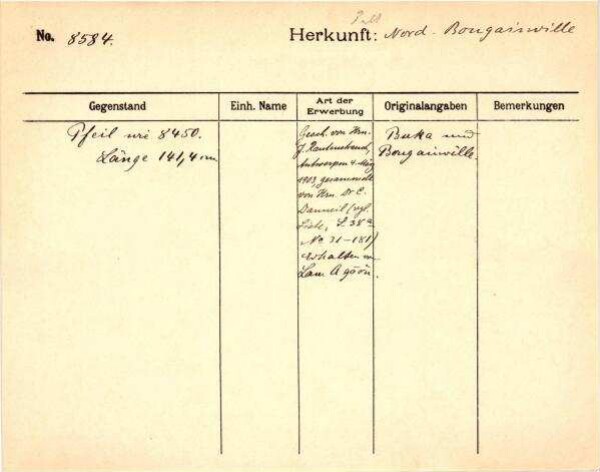 No. 8584.
Herkunft: Nord-Bougainville
Gegenstand
Einh. Name
Art der Erwerbung
Originalangaben
Bemerkungen
Pfeil wie 8450.
Länge 141,4 cm
Gesch. von Hrn.
J. Rautenstrauch,
Antwerpen 4. März
1903, gesammelt
von Hrn. Dr C.
Danneil (vgl.
Liste, L 38a
No 31-181)
Erhalten
Buka und
Bougainville.